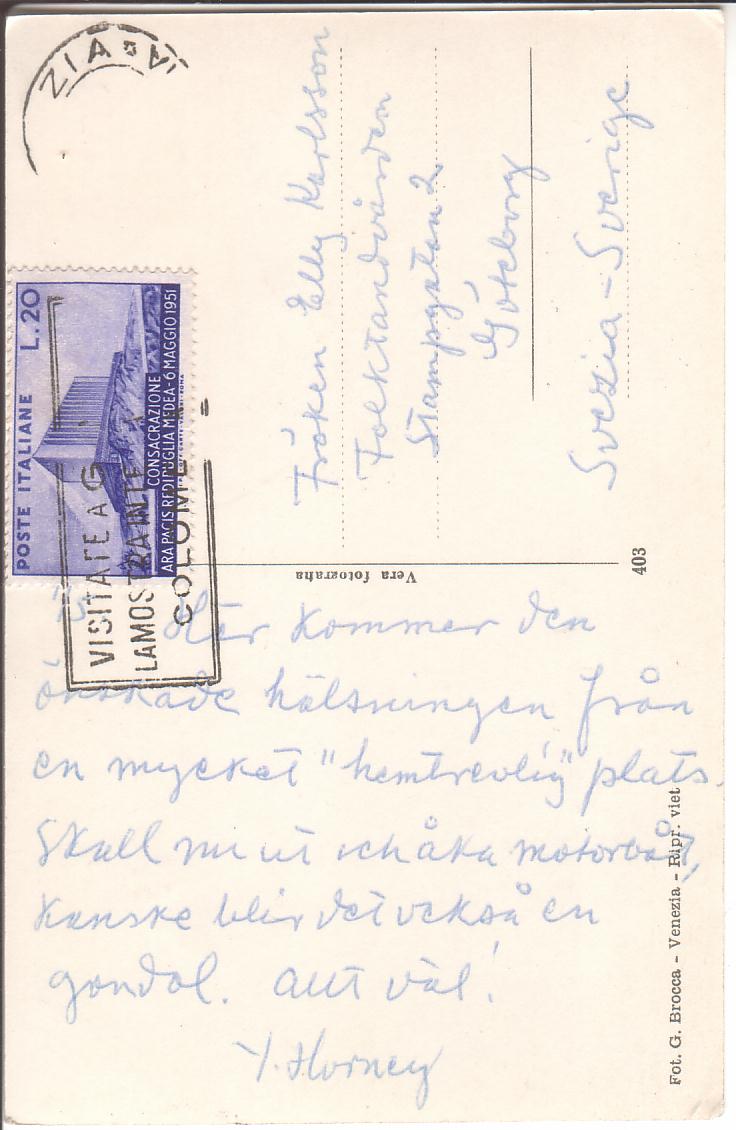 ZIA VI
POSTE ITALIANE L.20
CONSACRAZIONE
ARA PACIS REDIPUGLIA MEDEA-6 MAGGIO 1951
VISITATE A G
LA MOSTRA
COLOM
Fröken Elly Karlsson
Folktandvården
Stampgatan 2
Göteborg
Svezia - Sverige
Vera fotografia
403
Här kommer den
önskade hälsningen från
en mycket "hemtrevlig" plats.
Skall nu ut och åka motorbåt,
kanske blir det också en
gondol. Allt väl!
Y. Horney
Fot. G. Brocca - Venezia - Ripr. viet